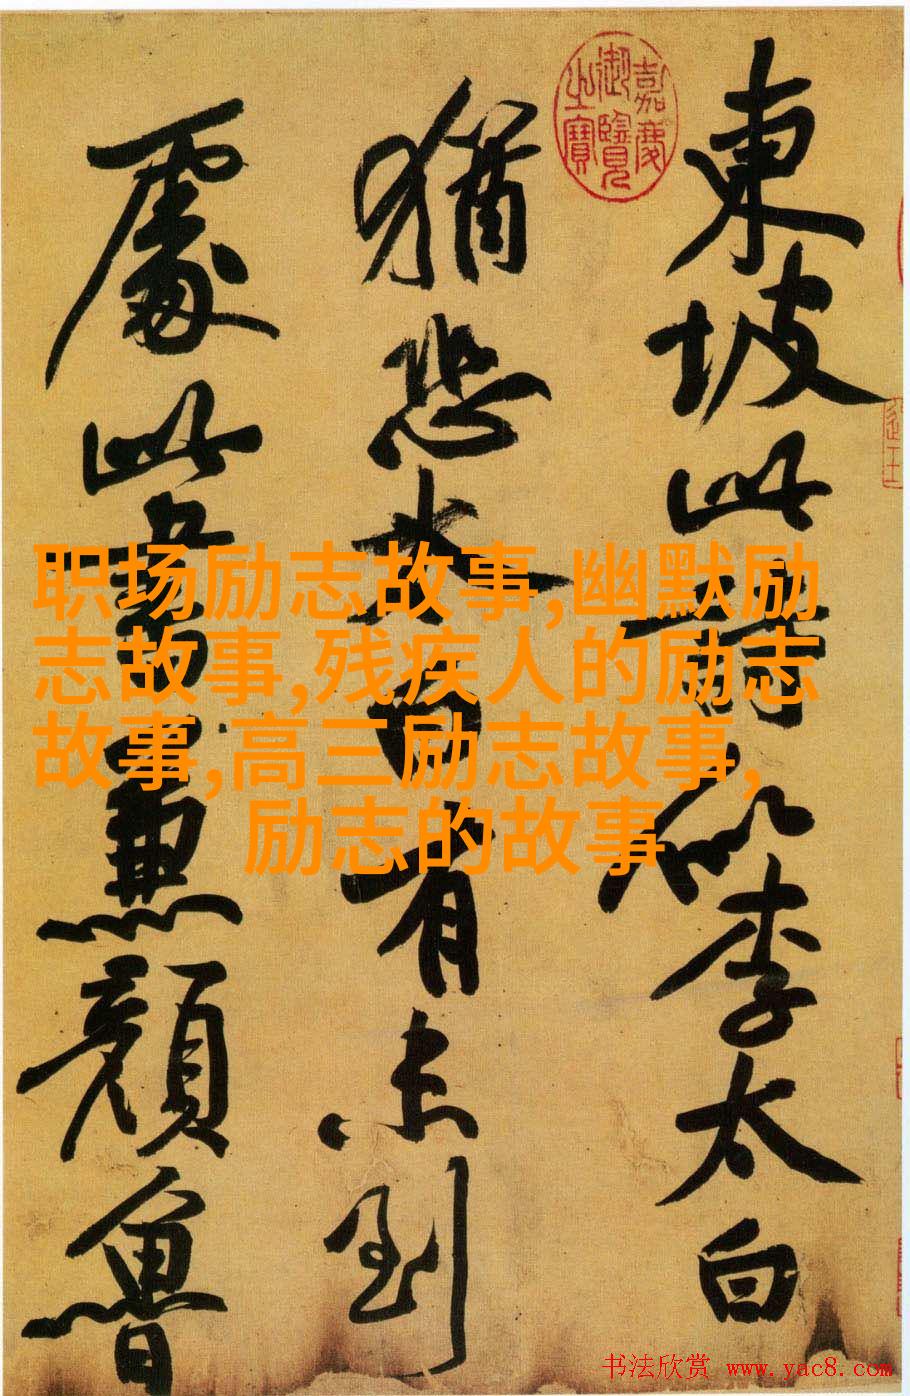 東坡此詩似李太白
猶恐太白有未到
處此書兼顔魯
嘉慶
御覽
之寶
职场励志故事,幽默励
志故事,残疾人的励志
故事,高三励志故事,
励志的故事
书法欣赏 www.yac8.com